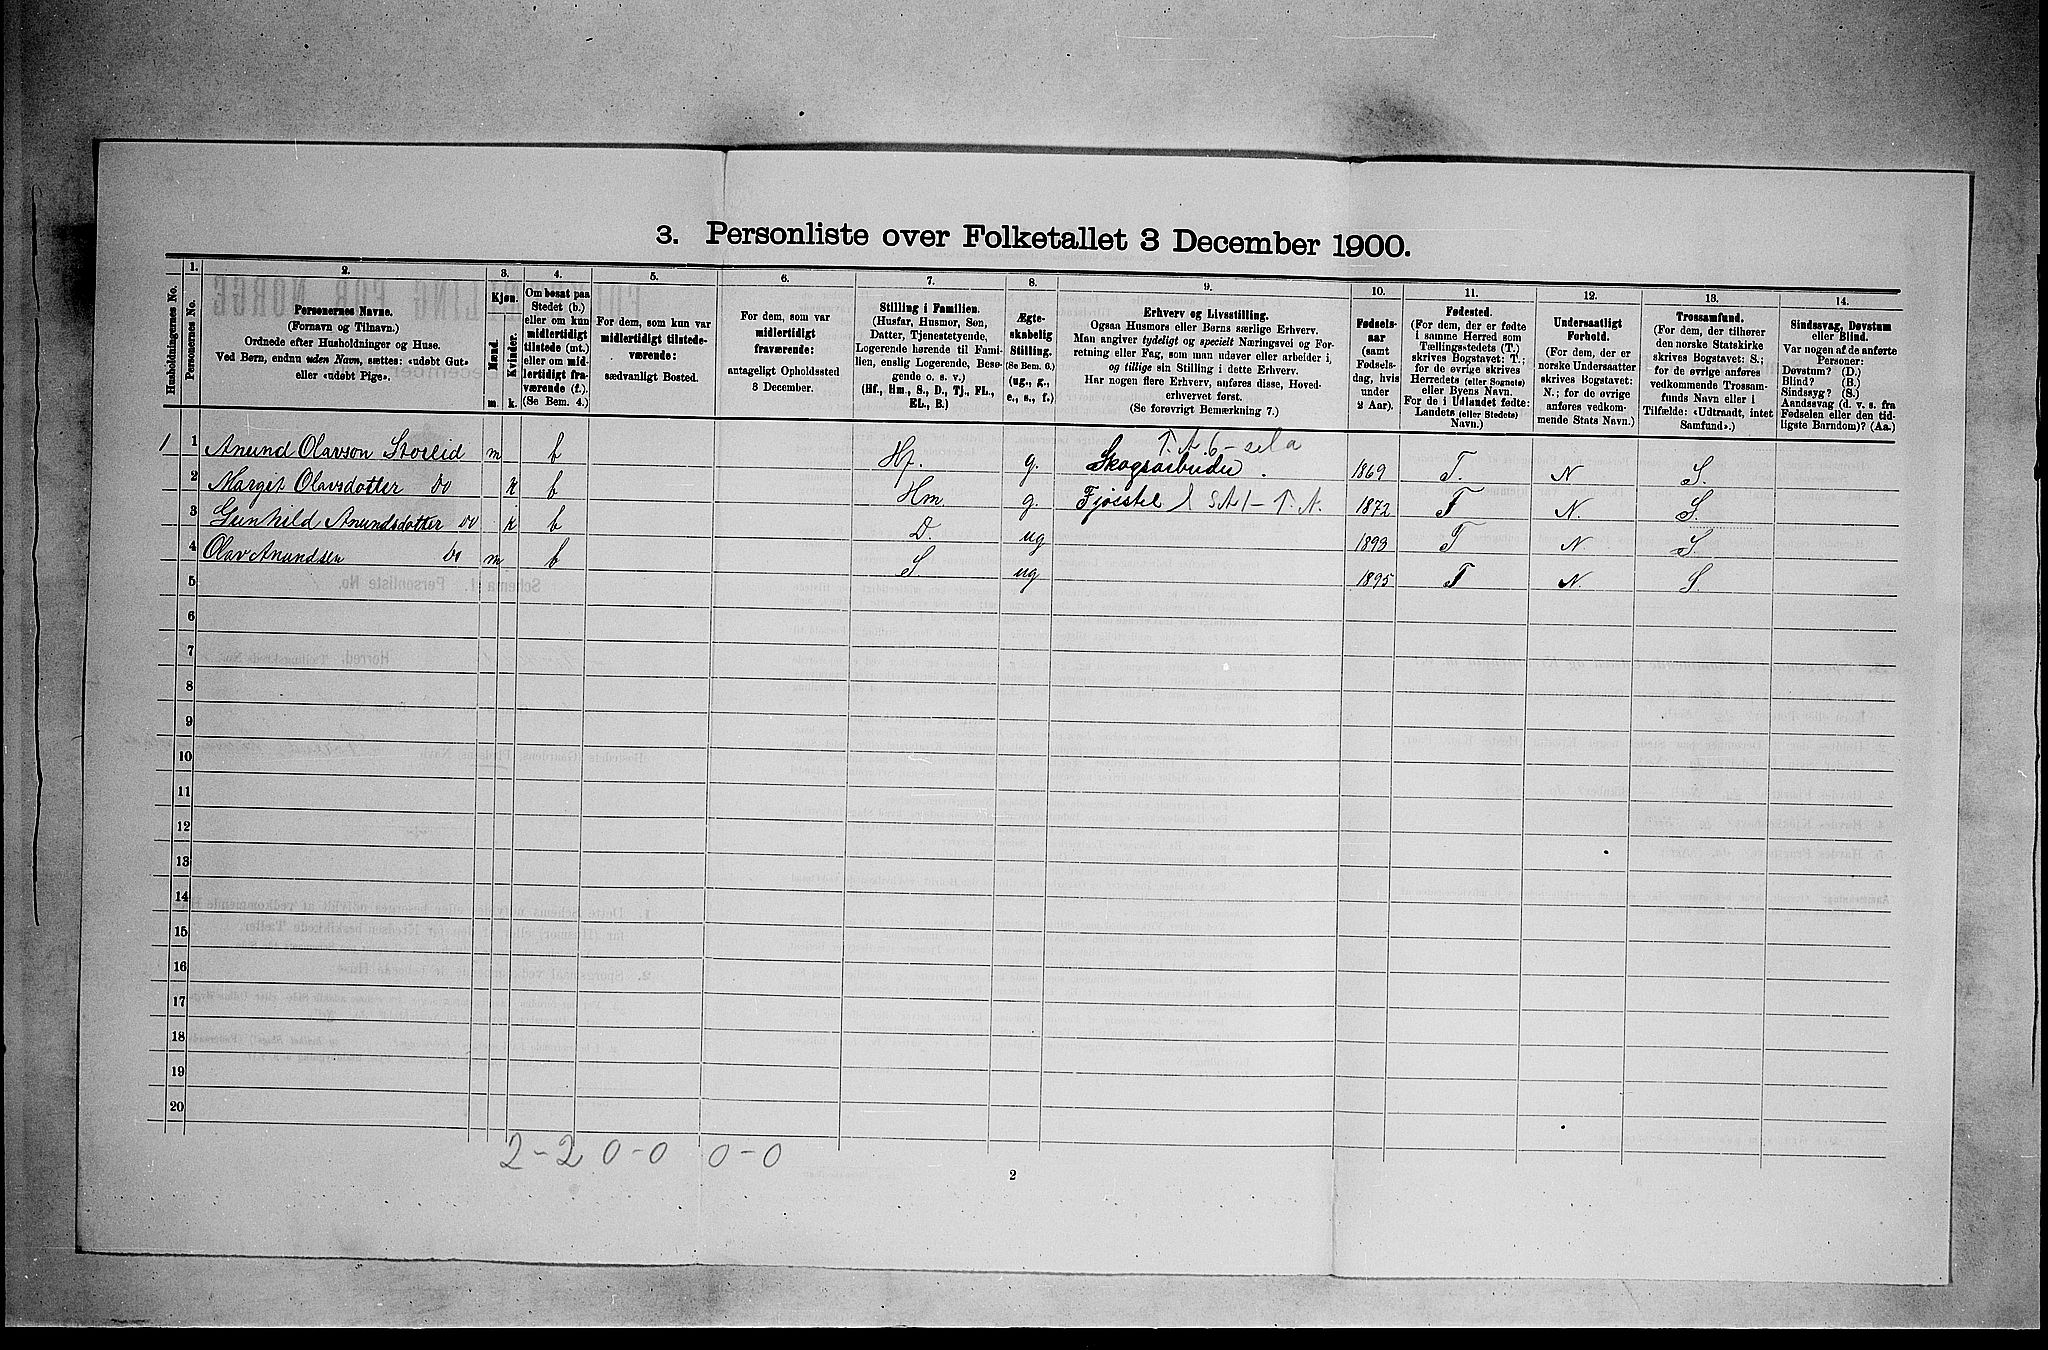 3. Personliste over Folketallet 3 December 1900.
Husholdningernes No.
1.
Personernes No.
2.
Personernes Navne.
(Fornavn og Tilnavn.)
Ordnede efter Husholdninger og Huse.
Ved Børn, endnu uden Navn, sættes: «udøbt Gut»
eller «udøbt Pige».
3.
Kjøn.
Mænd.
Kvinder.
m. k.
4.
Om bosat paa
Stedet (b.)
eller om kun
midlertidigt
tilstede (mt.)
eller om mid-
lertidigt fra-
værende (f.).
(Se Bem. 4.)
5.
For dem, som kun var
midlertidigt tilstede-
værende:
sædvanligt Bosted.
6.
For dem, som var
midlertidigt
fraværende:
antageligt Opholdssted
3 December.
7.
Stilling i Familien.
(Husfar, Husmor, Søn,
Datter, Tjenestetyende,
Logerende hørende til Fami-
lien, enslig Logerende, Besø-
gende o. s. v.)
(Hf., Hm., S., D., Tj., FL.,
EL., B.)
8.
Ægte-
skabelig
Stilling.
(Se Bem. 6.)
(ug., g.,
e., s., f.)
9.
Erhverv og Livsstilling.
Ogsaa Husmors eller Børns særlige Erhverv.
Man angiver tydeligt og specielt Næringsvei og For-
retning eller Fag, som man udøver eller arbeider i,
og tillige sin Stilling i dette Erhverv.
Har nogen flere Erhverv, anføres disse, Hoved-
erhvervet først.
(Se forøvrigt Bemærkning 7.)
10.
Fødsels-
aar
(samt
Fødsels-
dag, hvis
under
2 Aar).
11.
Fødested.
(For dem, der er fødte
i samme Herred som
Tællingsstedets (T.)
skrives Bogstavet: T.;
for de øvrige skrives
Herredets (eller Sognets)
eller Byens Navn.
For de i Udlandet fødte:
Landets (eller Stedets)
Navn.)
12.
Undersaatligt
Forhold.
(For dem, der er
norske Undersaatter
skrives Bogstavet:
N.; for de øvrige
anføres vedkom-
mende Stats Navn.)
13.
Trossamfund.
(For dem, der tilhører
den norske Statskirke
skrives Bogstavet: S.;
for de øvrige anføres
vedkommende Trossam-
funds Navn eller i
Tilfælde: «Udtraadt, intet
Samfund».)
14.
Sindssvag, Døvstum
eller Blind.
Var nogen af de anførte
Personer:
Døvstum? (D.)
Blind? (B.)
Sindssyg? (S.)
Aandssvag (d. v. s. fra
Fødselen eller den tid-
ligste Barndom)? (Aa.)
T. A. 6 -
1 1 Anund Olavson Storlid m b Hf. g. Skogsarbeider. 1869 T. N S.
2 Margit Olavsdotter Do k b Hm. g. Fjøsstel 1872 T N. S.
3 Gunhild Anundsdotter Do k b D. ug 1893 T N. S.
4 Olav Anundsen Do m b S. ug 1895 T N. S.
5
6
7
8
9
10
11
12
13
14
15
16
17
18
19
20
2-2 0-0 0-0
2